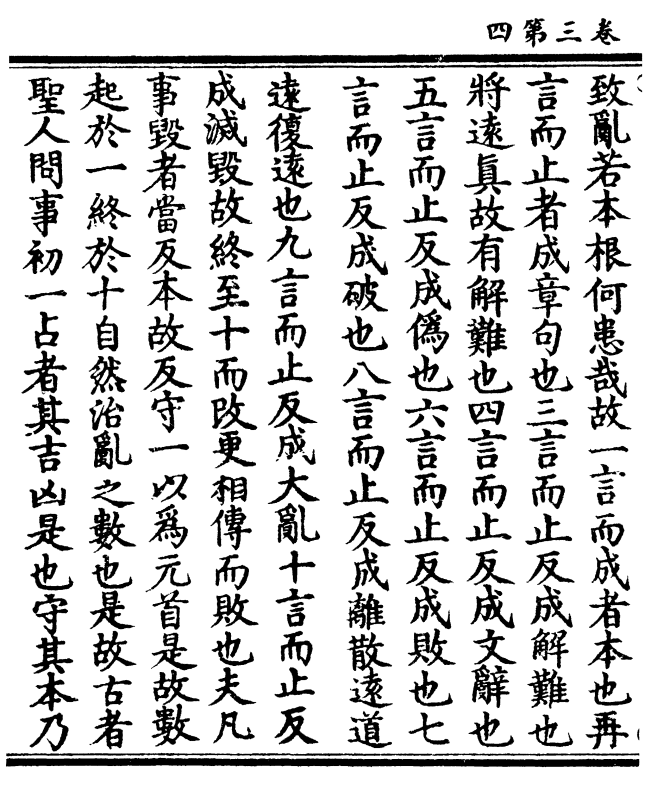 卷三第四
致亂若本根何患哉故一言而成者本也再
言而止者成章句也三言而止反成解難也
將遠眞故有解難也四言而止反成文辭也
五言而止反成僞也六言而止反成敗也七
言而止反成破也八言而止反成離散遠道
遠復遠也九言而止反成大亂十言而止反
成滅毀故終至十而改更相傳而敗也夫凡
事毀者當反本故反守一以爲元首是故數
起於一終於十自然治亂之數也是故古者
聖人問事初一占者其吉凶是也守其本乃